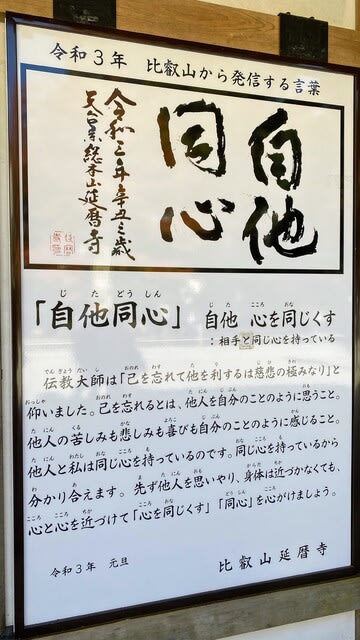 令和３年　比叡山から発信する言葉
自他
同心
令和三年辛丑歳
天台宗総本山延暦寺
「自他同心」　自他　心を同じくす
：相手と同じ心を持っている
伝教大師は「己を忘れて他を利するは慈悲の極みなり」と
仰いました。己を忘れるとは、他人を自分のことのように思うこと。
他人の苦しみも悲しみも喜びも自分のことのように感じること。
他人と私は同じ心を持っているのです。同じ心を持っているから
分かり合えます。先ず他人を思いやり、身体は近づかなくても、
心と心を近づけて「心を同じくす」「同心」を心がけましょう。
令和３年　元旦
比叡山延暦寺